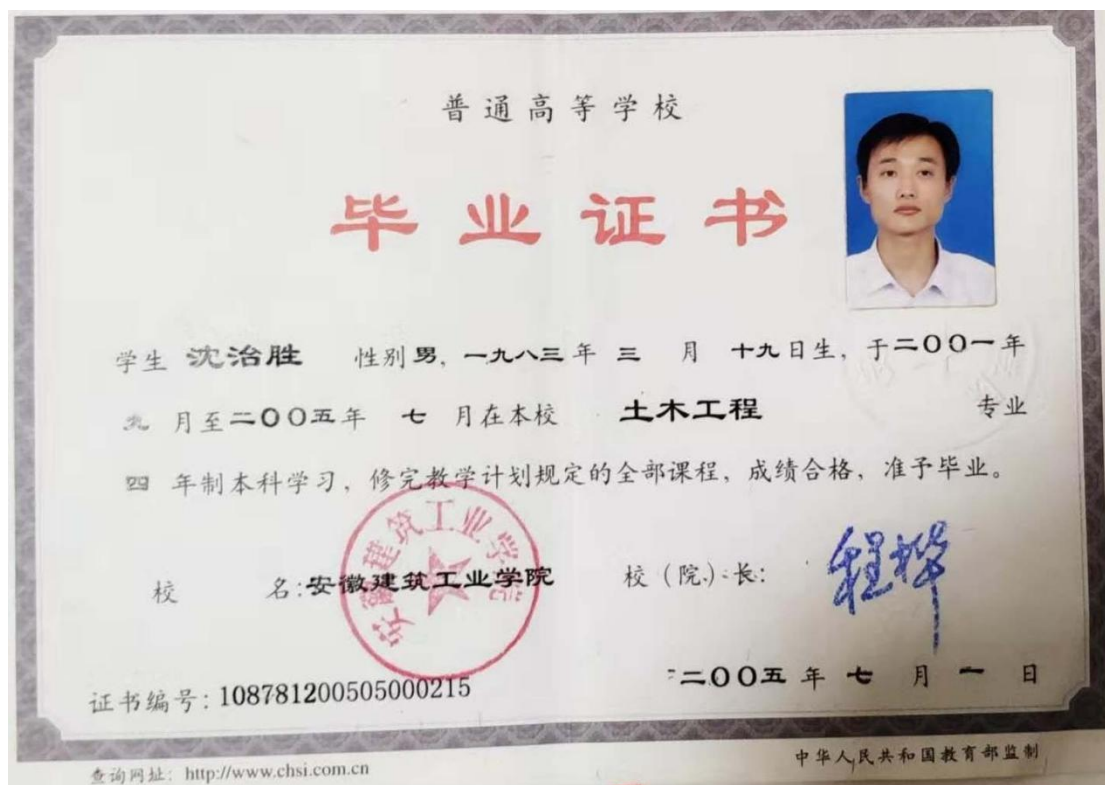 普通高等学校
毕业证书
学生 沈治胜 性别 男, 一九八三年 三 月 十九日生, 于二〇〇一年
九 月至二〇〇五年 七 月在本校 土木工程 专业
四 年制本科学习, 修完教学计划规定的全部课程, 成绩合格, 准予毕业。
安徽建筑工业学院
校 名: 安徽建筑工业学院 校(院)长: 程桦
证书编号: 108781200505000215 二〇〇五年 七 月 一 日
查询网址: http://www.chsi.com.cn 中华人民共和国教育部监制